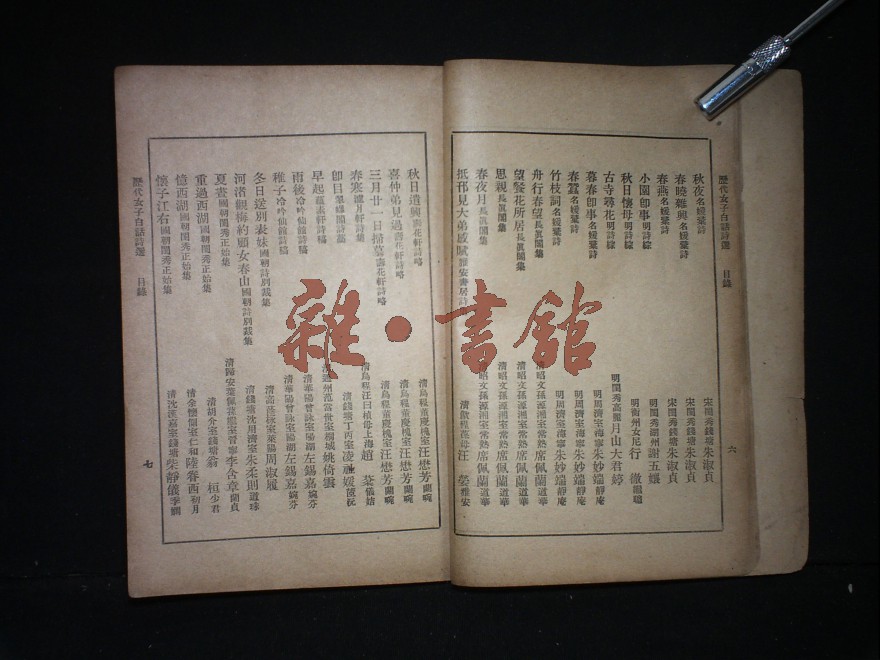 歷代女子白話詩選 目錄 六
秋夜名媛彙詩 宋閨秀錢塘朱淑貞
春曉雜興名媛彙詩 宋閨秀錢塘朱淑貞
春燕名媛彙詩 宋閨秀錢塘朱淑貞
小園卽事明詩綜 明閨秀湖州謝五孃
秋日懷母明詩綜 明衢州女尼行
古寺尋花明詩綜 明閨秀高麗月山大君婷
暮春卽事名媛彙詩 明周濟室海寧朱妙端靜庵
春蠶名媛彙詩 明周濟室海寧朱妙端靜庵
竹枝詞名媛彙詩 明周濟室海寧朱妙端靜庵
舟行春望長眞閣集 清昭文孫源湘室常熟席佩蘭道華
望鬢花所居長眞閣集 清昭文孫源湘室常熟席佩蘭道華
思親長眞閣集 清昭文孫源湘室常熟席佩蘭道華
春夜月長眞閣集 清昭文孫源湘室常熟席佩蘭道華
抵邗見大弟感賦雅安書屋詩 清歙程鼎母汪雅安
秋日遣興壽花軒詩略 清烏程董慶槐室汪懋芳蘭畹
喜仲弟見過壽花軒詩略 清烏程董慶槐室汪懋芳蘭畹
三月廿一日掃墓壽花軒詩略 清烏程董慶槐室汪懋芳蘭畹
春寒軒詩集 清烏程汪曰楨母上海趙棻儀姞
卽目詩稿 清錢塘丁丙室凌祉媛茝沅
早起軒詩稿 通州范當世室桐城姚倚雲
雨後冷吟仙館詩稿 清華陽曾詠室陽湖左錫嘉婉芬
稚子冷吟仙館詩稿 清華陽曾詠室陽湖左錫嘉婉芬
冬日送別表妹國朝詩別裁集 清高室萊陽周淑履
河渚觀梅約顧女春山國朝詩別裁集 清錢塘沈用濟室朱柔則道珠
夏晝國朝閨秀正始集 清歸安葉佩蓀繼室晉寧李含章蘭貞
重過西湖國朝閨秀正始集 清胡介室錢塘翁桓少君
憶西湖國朝閨秀正始集 清金懷室仁和陸眷西初月
懷子江右國朝閨秀正始集 清沈漢嘉室錢塘柴靜儀季嫻
歷代女子白話詩選 目錄 七
雜·書館